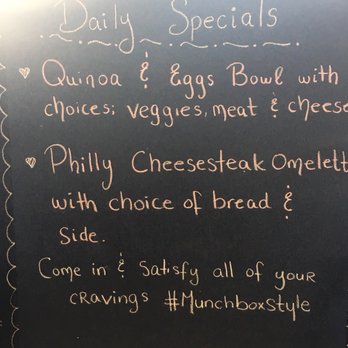 Daily Specials
Quinoa & Eggs Bowl with
choices; veggies, meat & cheese
Philly Cheesesteak Omelett
with choice of bread &
Side.
Come in & Satisfy all of your
cravings #Munchboxstyle